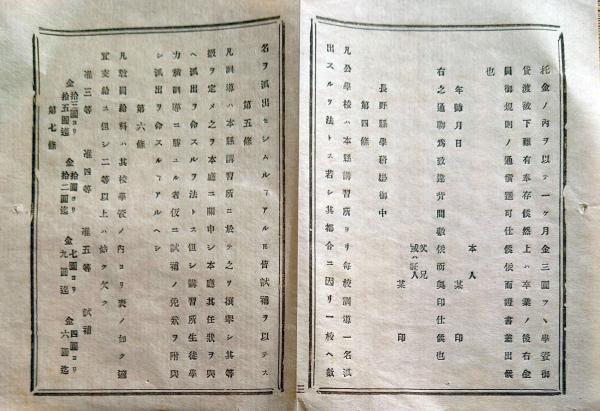 托金ノ内ヲ以テ一ケ月金三圓ヲヽ學資御
貸渡被下難有奉存候然上ハ卒業ノ後右金
圓御規則ノ通償還可仕候依而證書差出候
也
年號月日
本人 某 印
父兄
或ハ証人 某 印
右之通聊為致違背間敷候而奥印仕候也
長野縣學務掛御中
第四條
凡公學校ハ本縣講習所ヨリ毎校訓導一名派
出スルヲ法トス若シ其都合ニ因リ一校ヘ數
名ヲ派出セシムルヿアル皆試補ヲ以テス
第五條
凡訓導ハ本縣講習所ニ於テ之ヲ撰擧シ其等
級ヲ定メ之ヲ本廳ニ開申シ本廳其任狀ヲ與
ヘ派出ヲ命スルヲ法トス但シ講習所生徒學
力稍訓導ニ勝ユル者仮ニ試補ノ免狀ヲ附與
シ派出ヲ命スルヿアルヘシ
第六條
凡敎員給料ハ其校學資ノ内ヨリ表ノ如ク適
宜支給ス但シ二等以上ハ姑ク欠ク
准三等 准四等 准五等 試補
金拾三圓ヨリ拾五圓迄 金拾圓ヨリ拾二圓迄 金七圓ヨリ九圓迄 金四圓ヨリ六圓迄
第七條
三